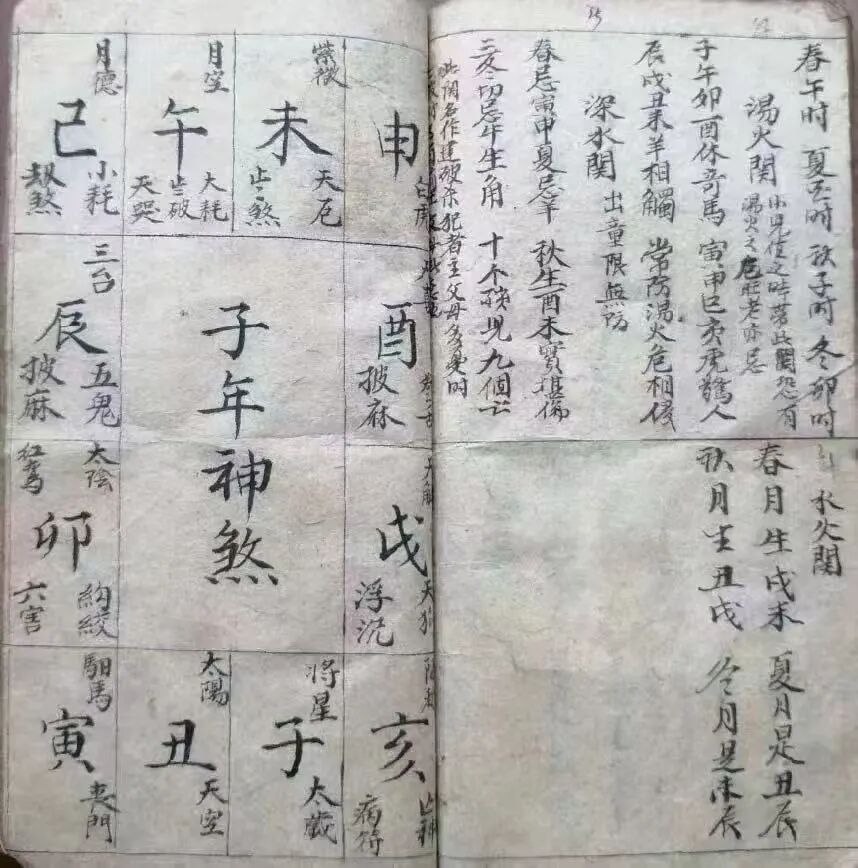 春午时 夏至时 秋子时 冬卯时
湯火関
小児值之時帯此関恐有
湯火之危旺老亦忌
子午卯酉休竒馬 寅申巳亥虎驚人
辰戌丑未羊相觸 常防湯火危相侵
深水関 出童限無防
春忌寅申夏忌羊 秋生酉未實堪傷
三冬切忌牛生角 十个孩児九個亡
此関名作達破杀犯者主父母多憂时
水火関
春月生戌未 夏月是丑辰
秋月生丑戌 冬月是未辰
子年神煞
月德
己
小耗
劫煞
月空
午
大耗
歩破
天哭
紫微
未
天厄
歩煞
申
三台
辰
五鬼
披麻
酉
披麻
太陰
紅鸞
卯
勾絞
六害
戌
天狗
浮沉
馹馬
寅
丧門
太陽
丑
天空
将星
子
太歳
亥
病符